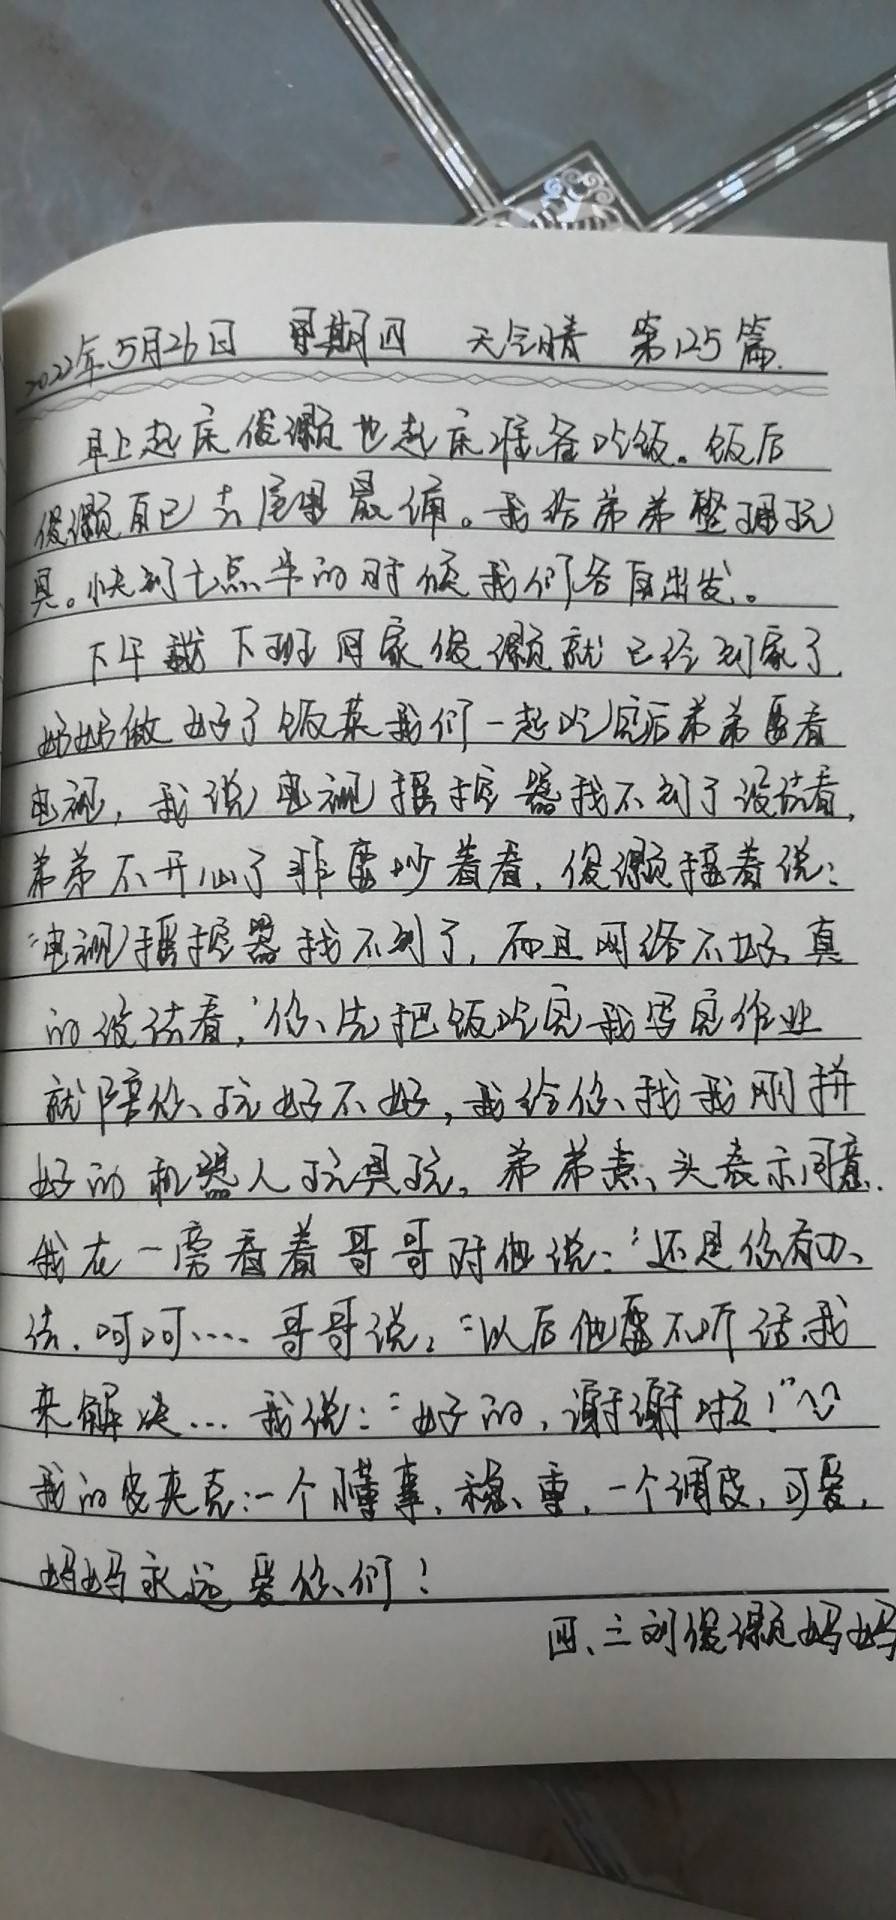 2022年5月26日 星期四 天气晴 第125篇.
早上起床俊灏也起床准备吃饭。饭后
俊灏自己去屋里晨诵。我给弟弟整理玩
具。快到七点半的时候我们各自出发。
下午我下班回家俊灏就已经到家了.
奶奶做好了饭菜我们一起吃完后弟弟要看
电视，我说电视摇控器找不到了没法看,
弟弟不开心了非要吵着看，俊灏接着说:
"电视摇控器找不到了，而且网络不好、真
的没法看，"你先把饭吃完我写完作业
就陪你玩好不好，我给你找我刚拼
好的机器人玩具玩。弟弟点头表示同意.
我在一旁看着哥哥对他说:"还是你有办
法.呵呵....哥哥说："以后他要不听话我
来解决...我说:"好的，谢谢啦！"
我的皮夹克:一个懂事，稳重，一个调皮，可爱，
妈妈永远爱你们！
四、三刘俊灏妈妈